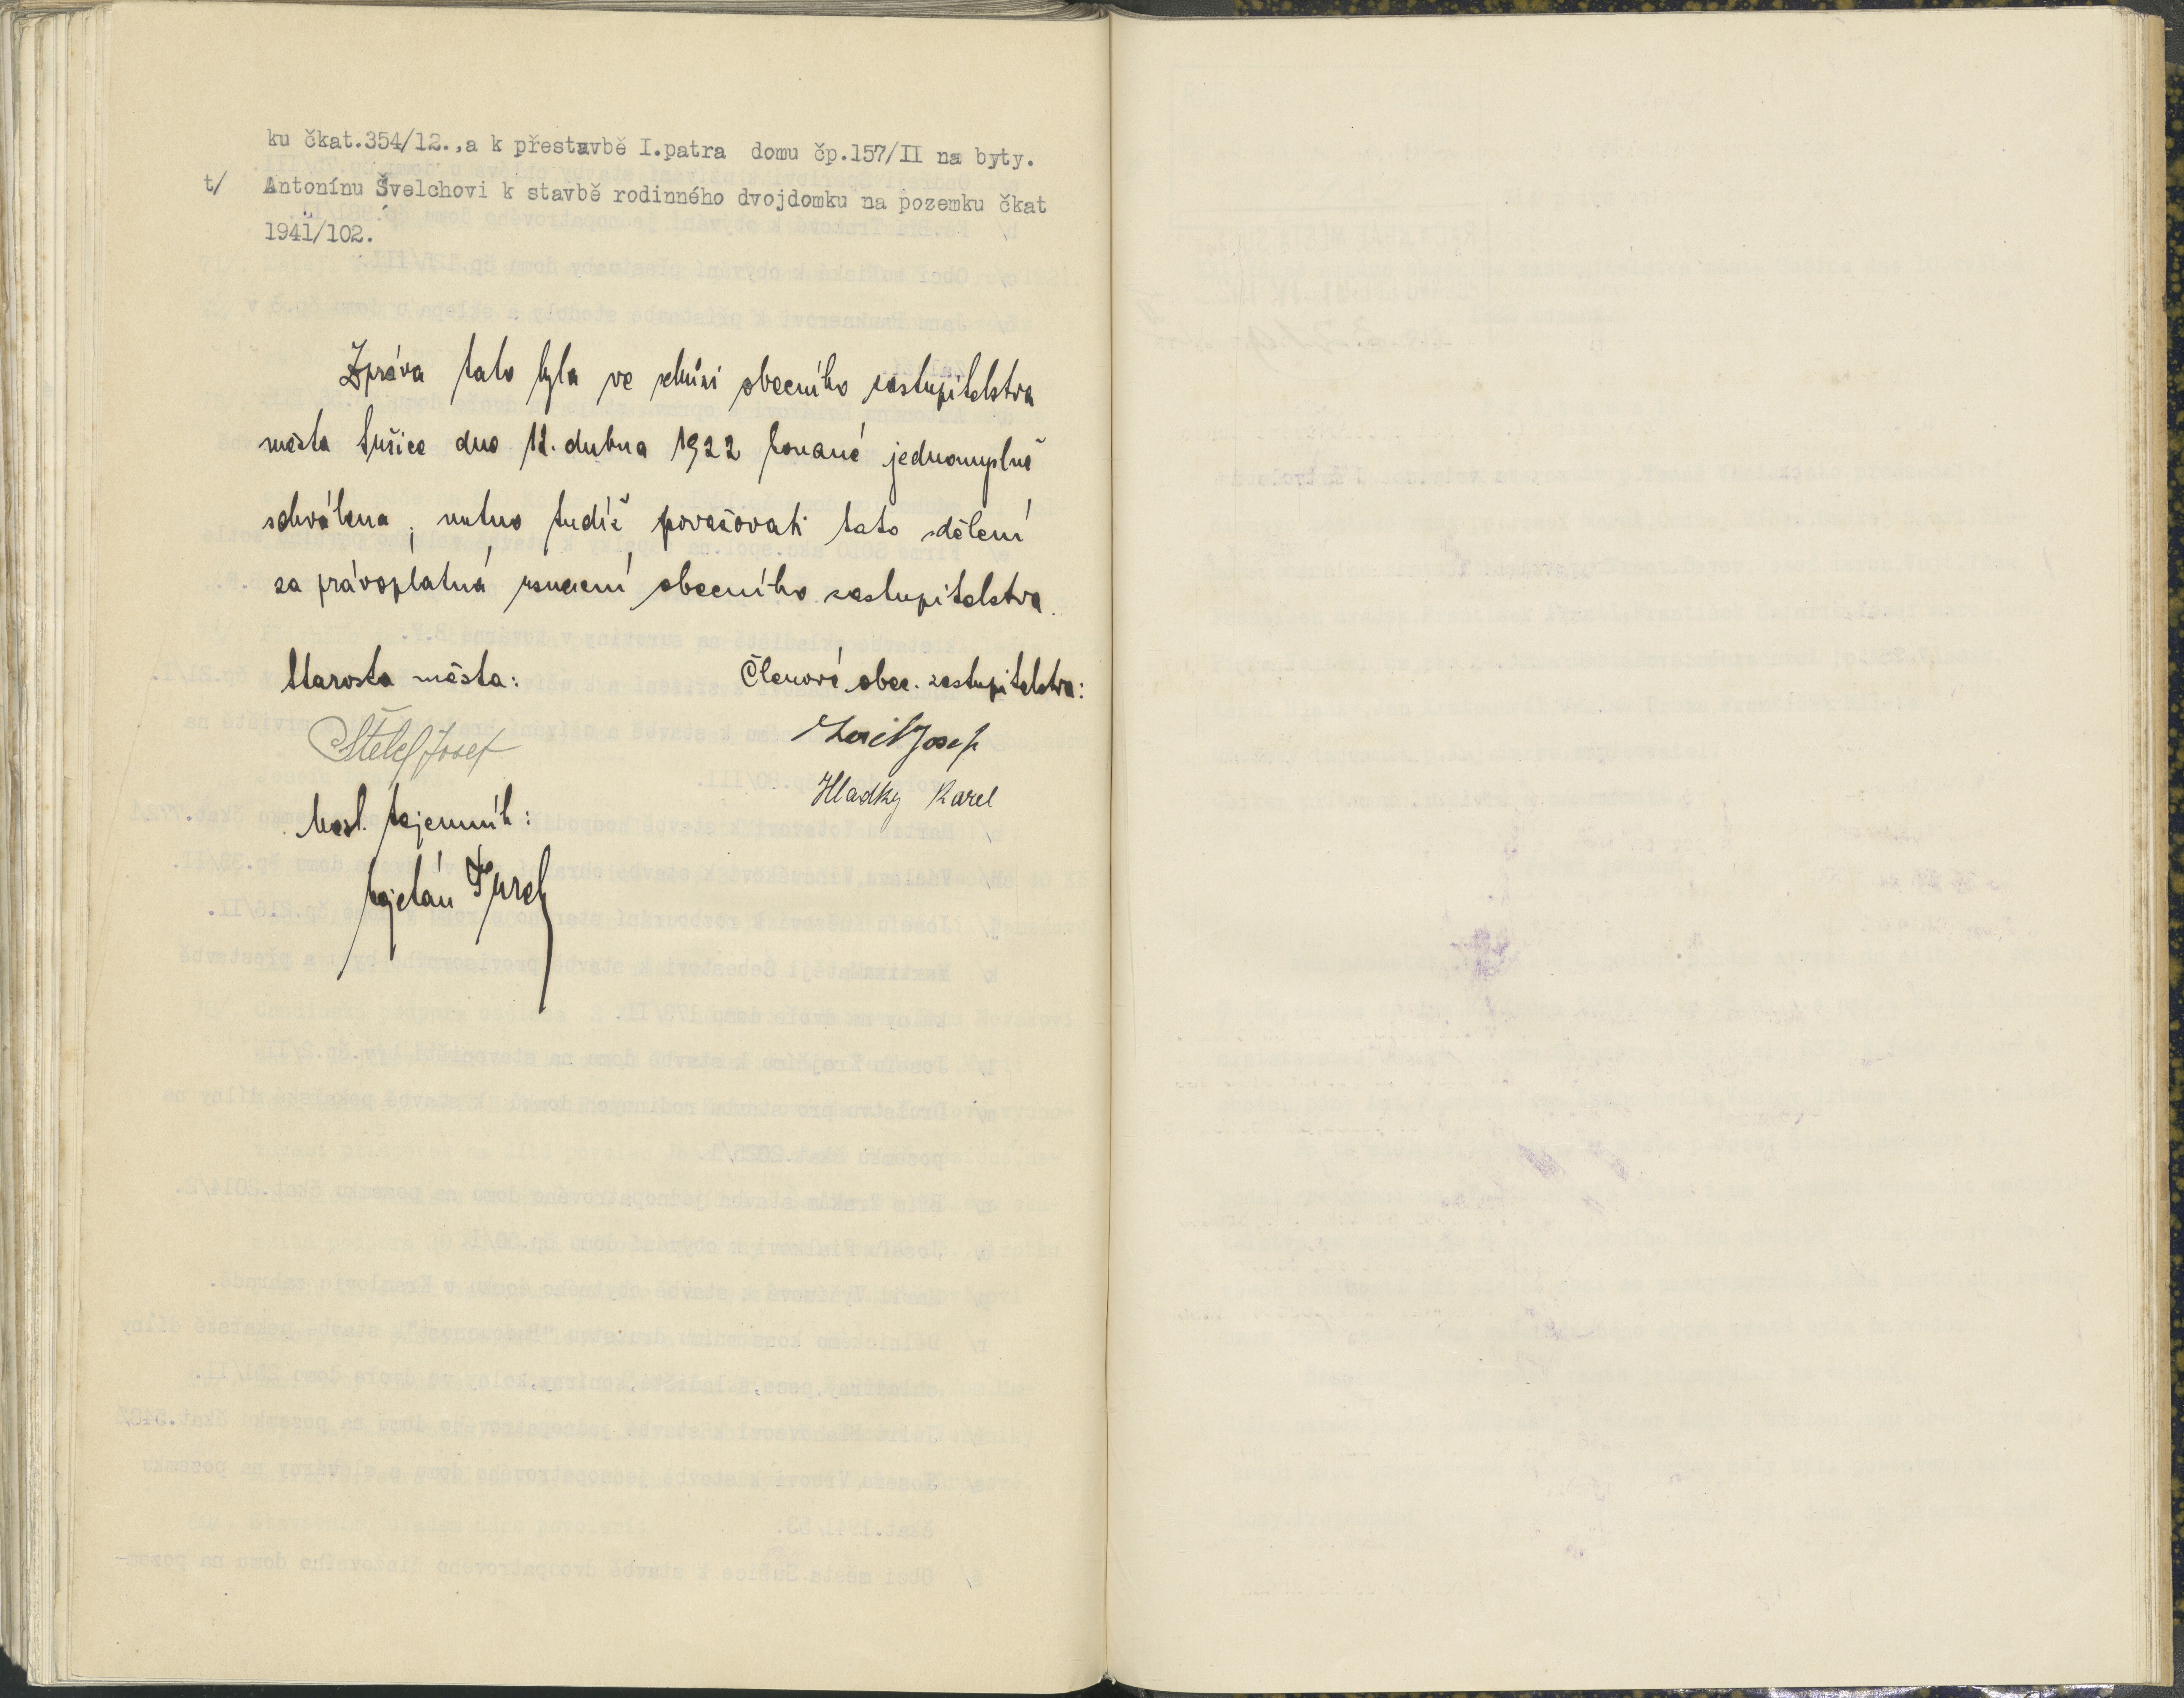 ku čkat.354/12.,a k přestavbě I.patra domu čp.157/II na byty.
t/ Antonínu Švelchovi k stavbě rodinného dvojdomku na pozemku čkat
1941/102.
Zpráva tato byla ve schůzi obecního zastupitelstva
města Sušice dne 12. dubna 1922 konané jednomyslně
schválena, nutno tudíž považovati tato sdělení
za právoplatná usnesení obecního zastupitelstva.
Starosta města:
Členové obec. zastupitelstva:
Štelcl Josef
Josef
Hladký Karel
Měst. tajemník:
Kajetán Turek